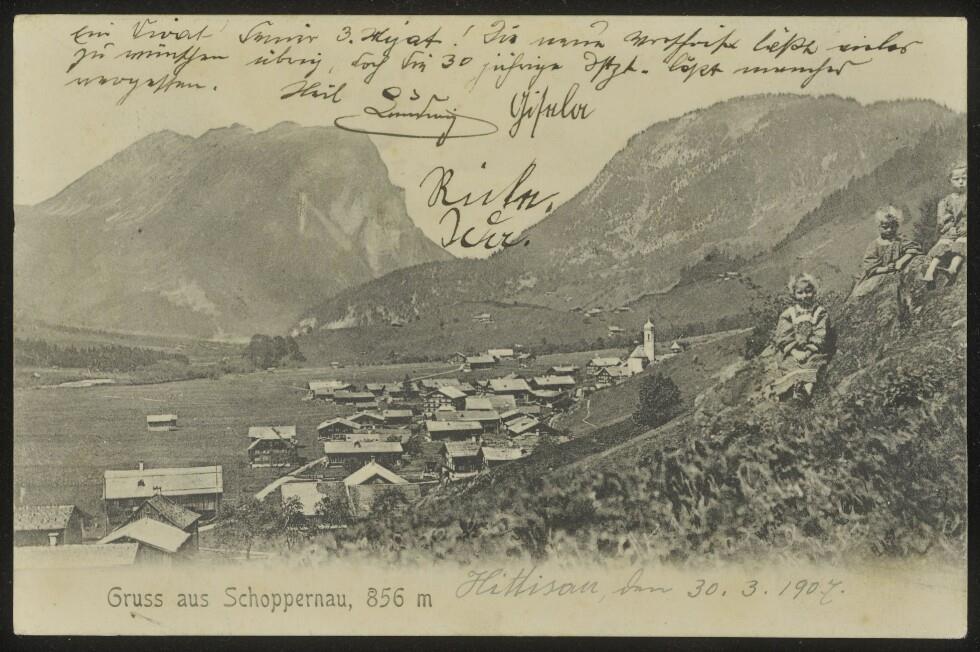 Ein Vivat Seiner 3. Majat.! Die neue Wortschrift läßt vieles
zu wünschen übrig, doch die 30 jährige läßt mancher
vergessen. Heil Ludwig Gisela
Gruss aus Schoppernau, 856 m
Hittisau, den 30. 3. 1907.